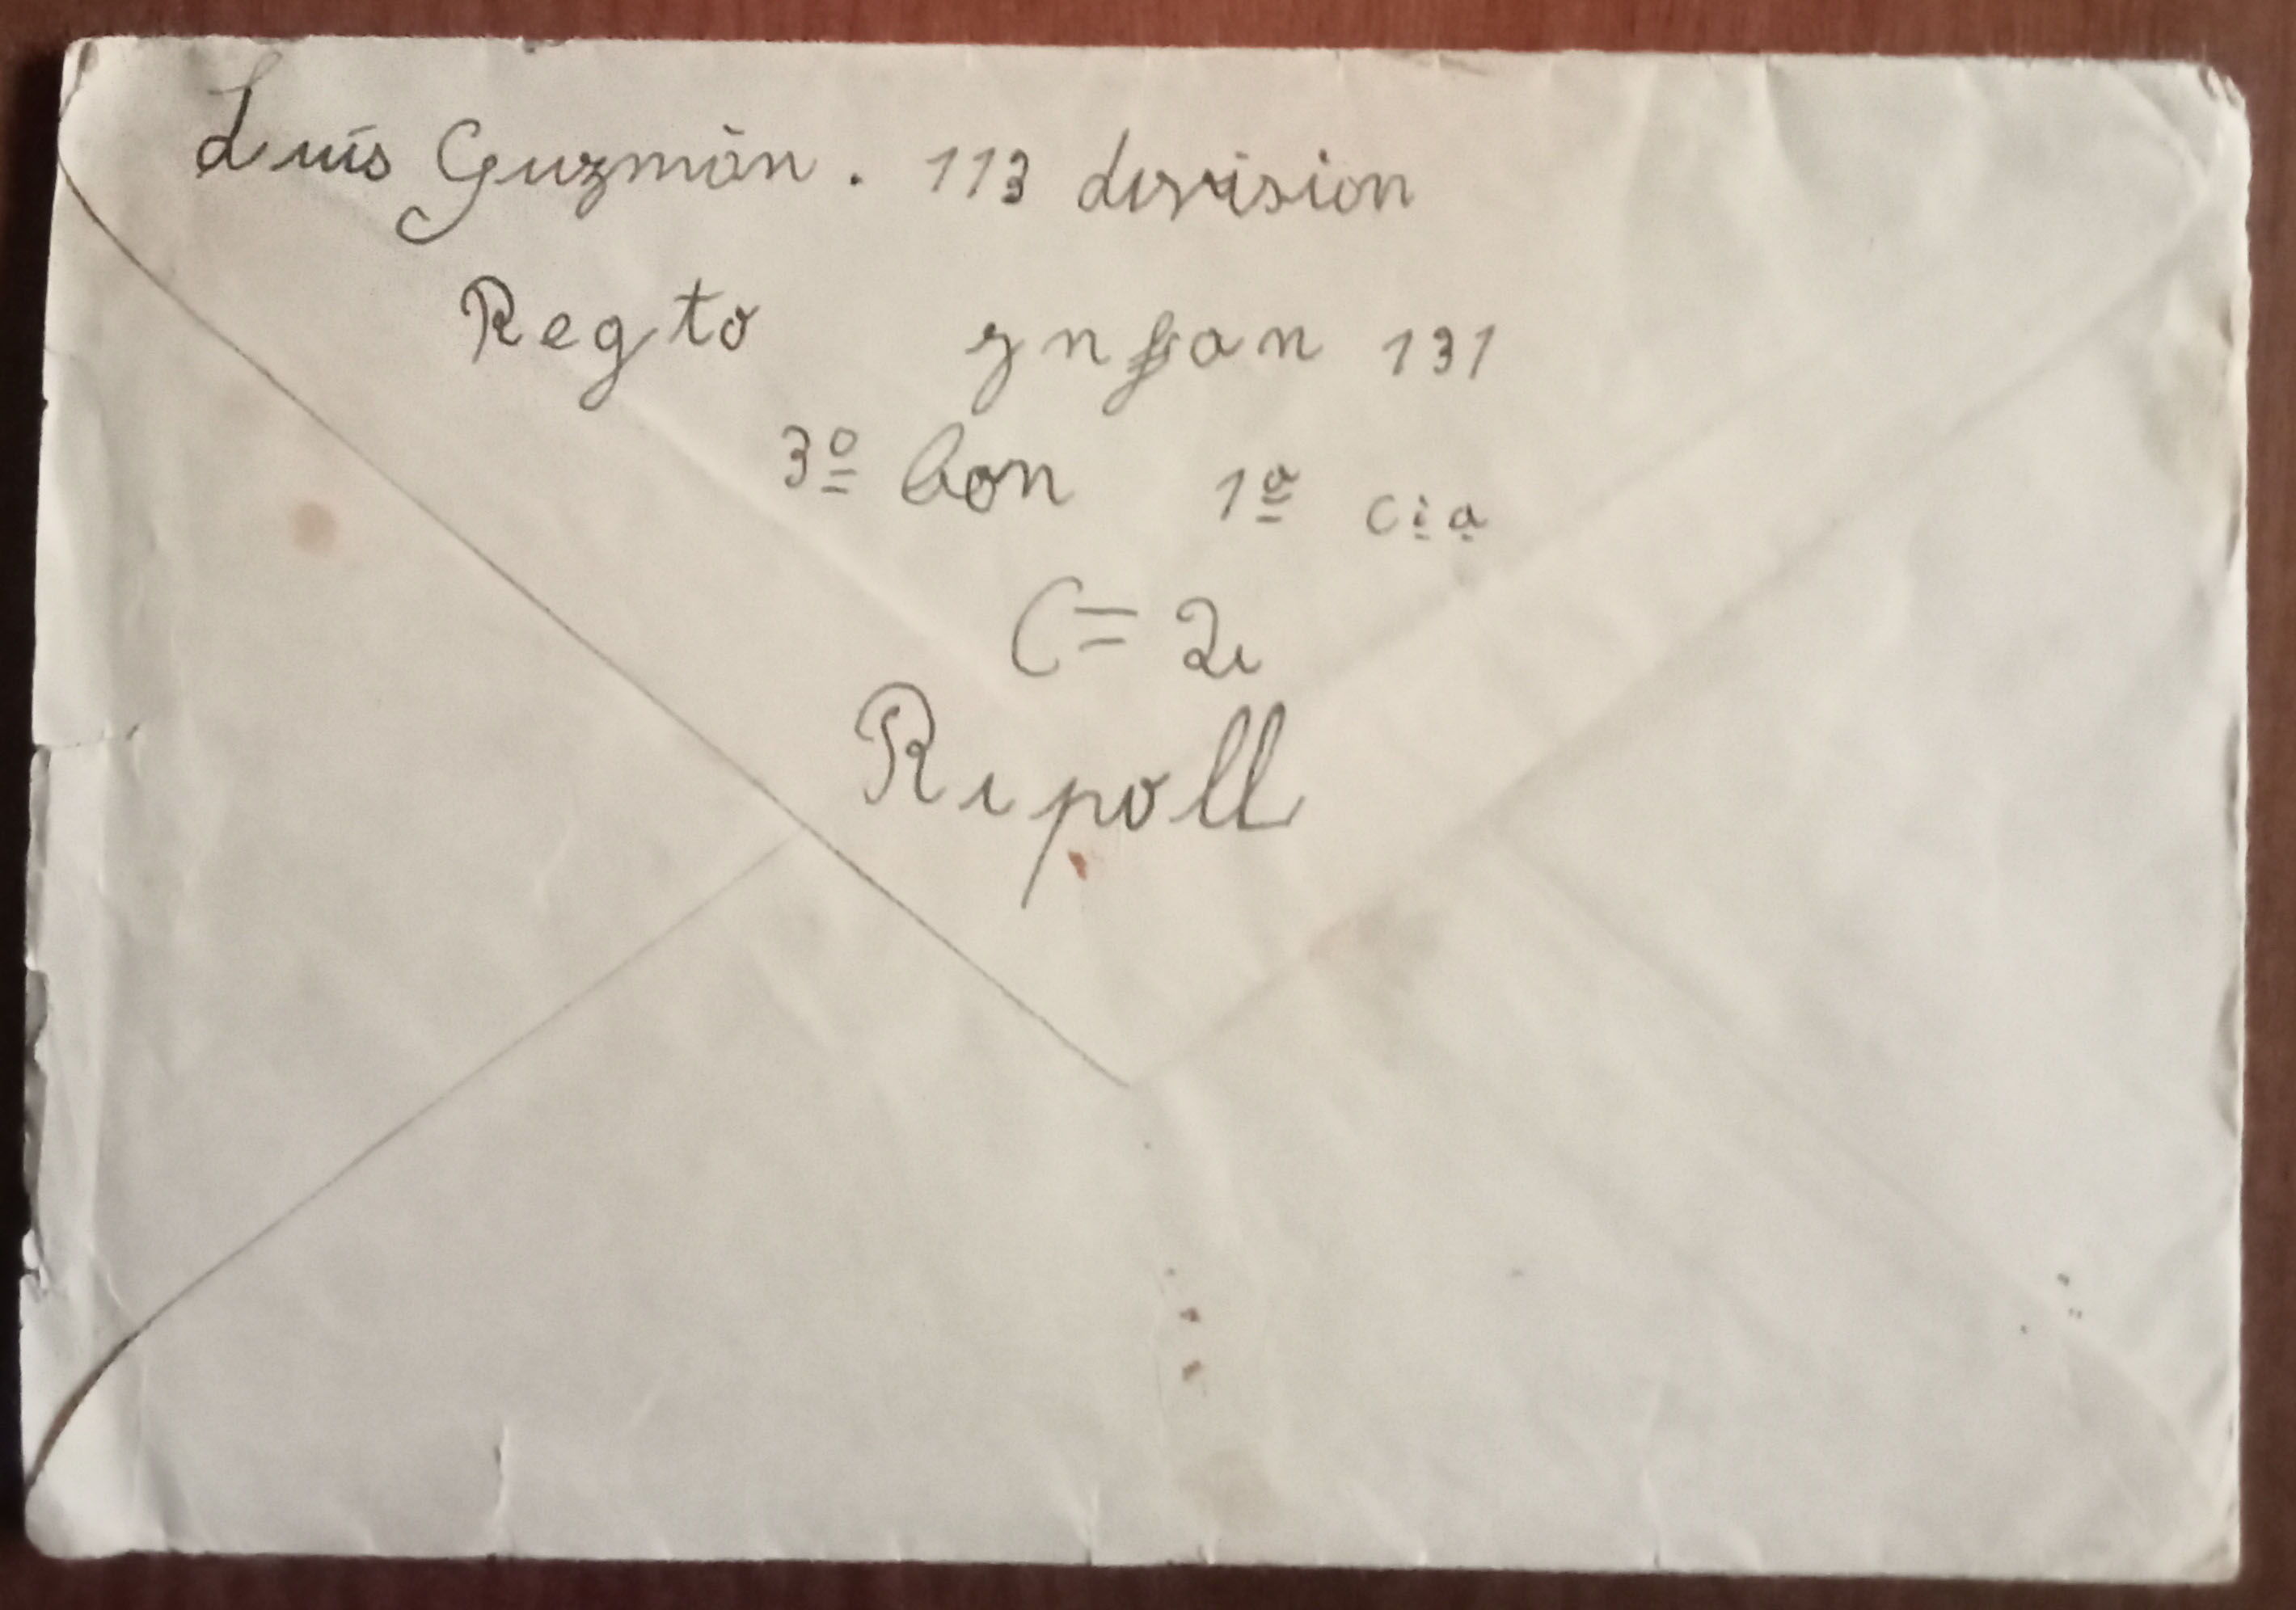 Luis Guzmán. 113 division
Regto ynfan 131
3º bon 1ª cia
C = 2
Ripoll